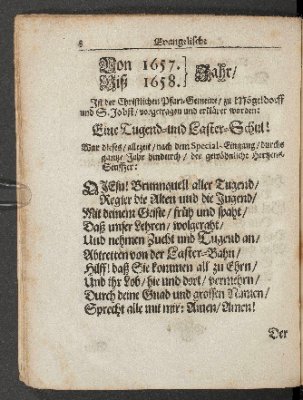 8 Evangelische
Von 1657.
Biß 1658. } Jahr/
Ist der Christlichen Pfarr-Gemeine/ zu Mögeldorff
und S. Jobst/ vorgetragen und erkläret worden:
Eine Tugend-und Laster-Schul!
War dieses/ allezeit/ nach dem Special-Eingang/ durchs
gantze Jahr hindurch/ der gewöhnliche Hertzens-
Seuffzer:
O JEsu! Brunnquell aller Tugend/
Regier die Alten und die Jugend/
Mit deinem Geiste/ früh und spaht/
Daß unser Lehren/ wolgeraht/
Und nehmen Zucht und Tugend an/
Abtretten von der Laster-Bahn/
Hilff! daß Sie kommen all zu Ehrn/
Und ihr Lob/ hie und dort/ vermehrn/
Durch deine Gnad und grossen Namen/
Sprecht alle mit mir: Amen/ Amen!
Der